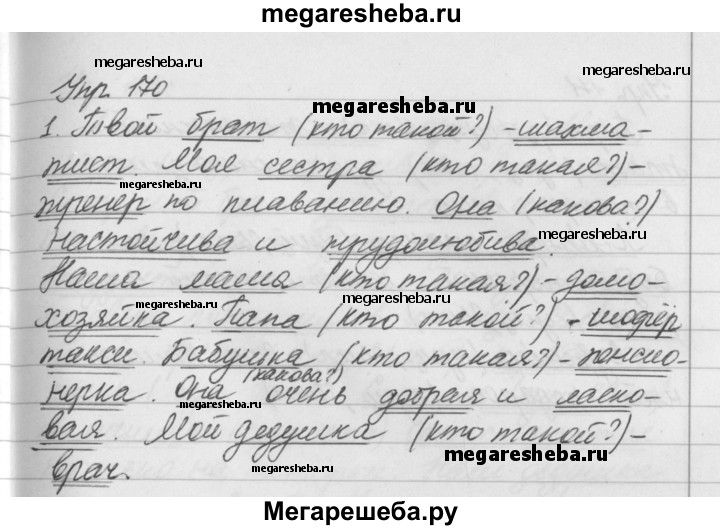 megaresheba.ru
megaresheba.ru
Упр. 170
megaresheba.ru
1. Твой брат (кто такой?) - шахма-
тист. Моя сестра (кто такая?) -
megaresheba.ru
тренер по плаванию. Она (какова?)
настойчива и трудолюбива.
megaresheba.ru
Наша мама (кто такая?) - домо-
megaresheba.ru
megaresheba.ru
хозяйка. Папа (кто такой?) - шофёр
такси. Бабушка (кто такая?) - пенсио-
(какова?)
нерка. Она очень добрая и ласко-
megaresheba.ru
вая. Мой дедушка (кто такой?) -
megaresheba.ru
megaresheba.ru
врач.
Мегарешеба.ру